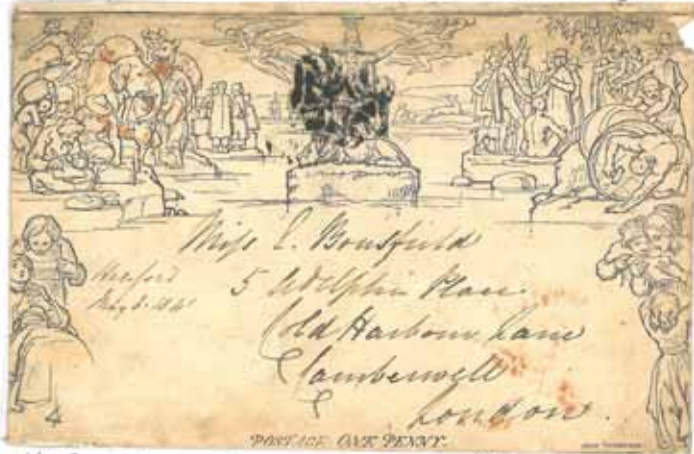 Miss E. Bousfield
5 Adelphi Place
Cold Harbour Lane
Camberwell
London.
Hereford
4
POSTAGE ONE PENNY.